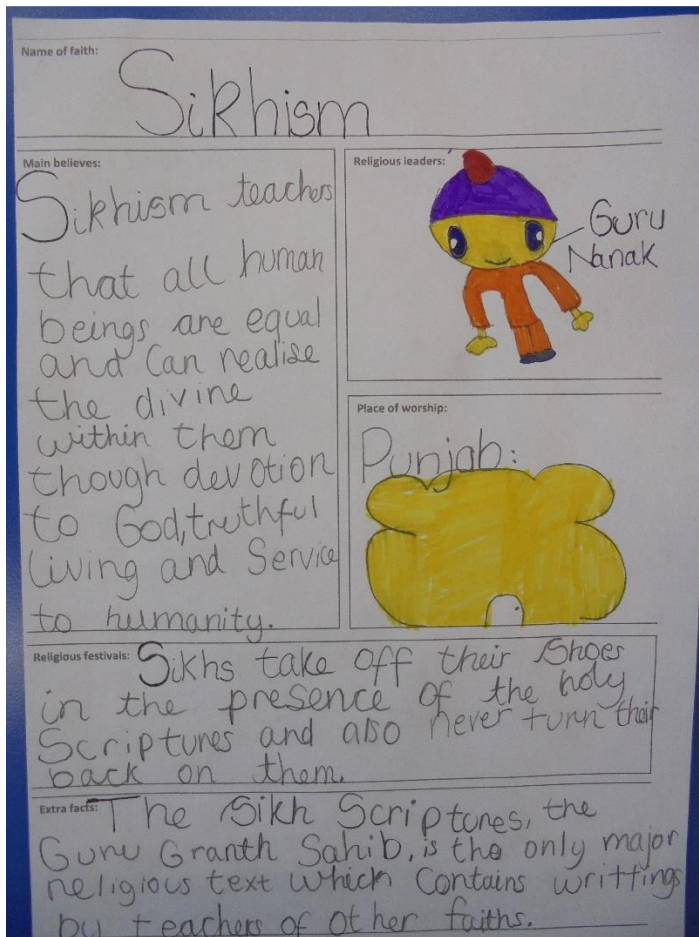 Name of faith:
Sikhism
Main believes:
Sikhism teachers
that all human
beings are equal
and Can realise
the divine
within them
though devotion
to God, truthful
Living and Service
to humanity.
Religious leaders:
Guru
Nanak
Place of worship:
Punjab:
Religious festivals: Sikhs take off their Shoes
in the presence of the holy
Scriptures and also never turn their
back on them.
Extra facts: The Sikh Scriptures, the
Guru Granth Sahib, is the only major
religious text which contains writtings
by teachers of other faiths.